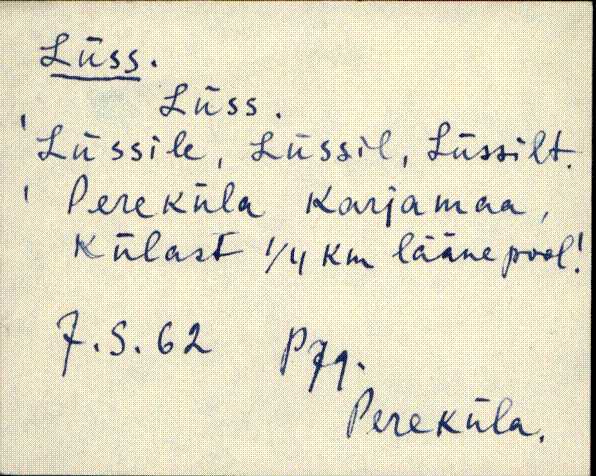 Lüss.
Lüss.
'Lüssile, Lüssil, Lüssilt.
' Pereküla karjamaa,
külast 1/4 km lääne pool!
7.S.62
Pereküla.